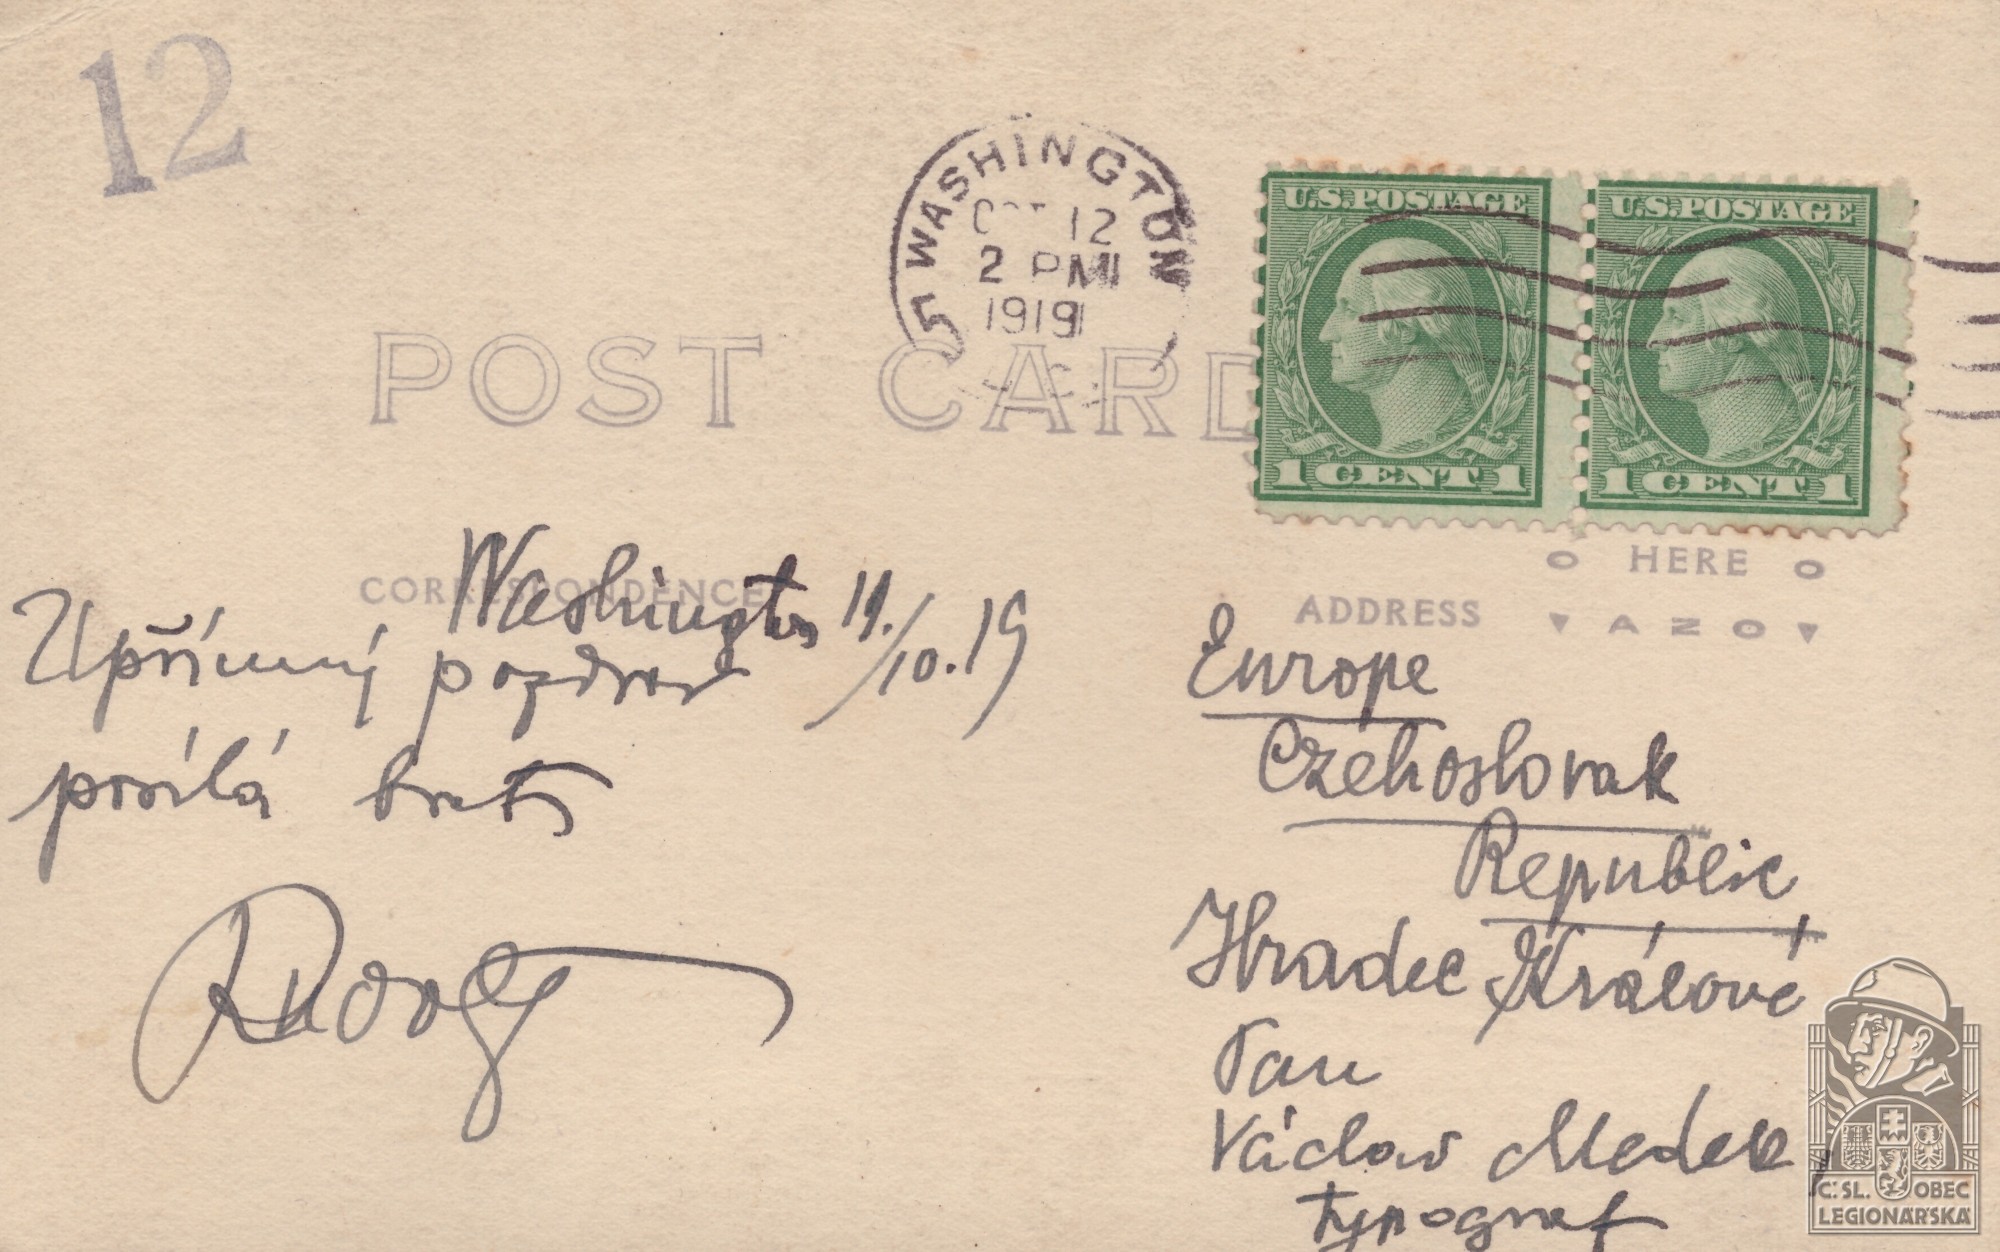 12
WASHINGTON
OCT 12
2 PM
1919
5
U.S. POSTAGE
1 CENT 1
U.S. POSTAGE
1 CENT 1
POST CARD
HERE
CORRESPONDENCE
ADDRESS
AZO
Washington 11./10.19
Upřímný pozdrav
posílá bratr
Rudolf
Europe
Czehoslovak
Republic
Hradec Králové
Pan
Václav Medek,
typograf
Č. SL. OBEC
LEGIONÁŘSKÁ